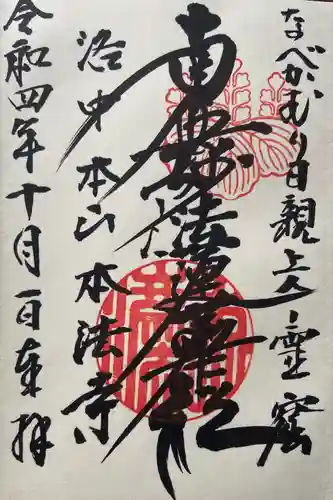 なべかむり日親上人霊窟
南無妙法蓮華経
洛中 本山 本法寺
令和四年十月一日奉拝